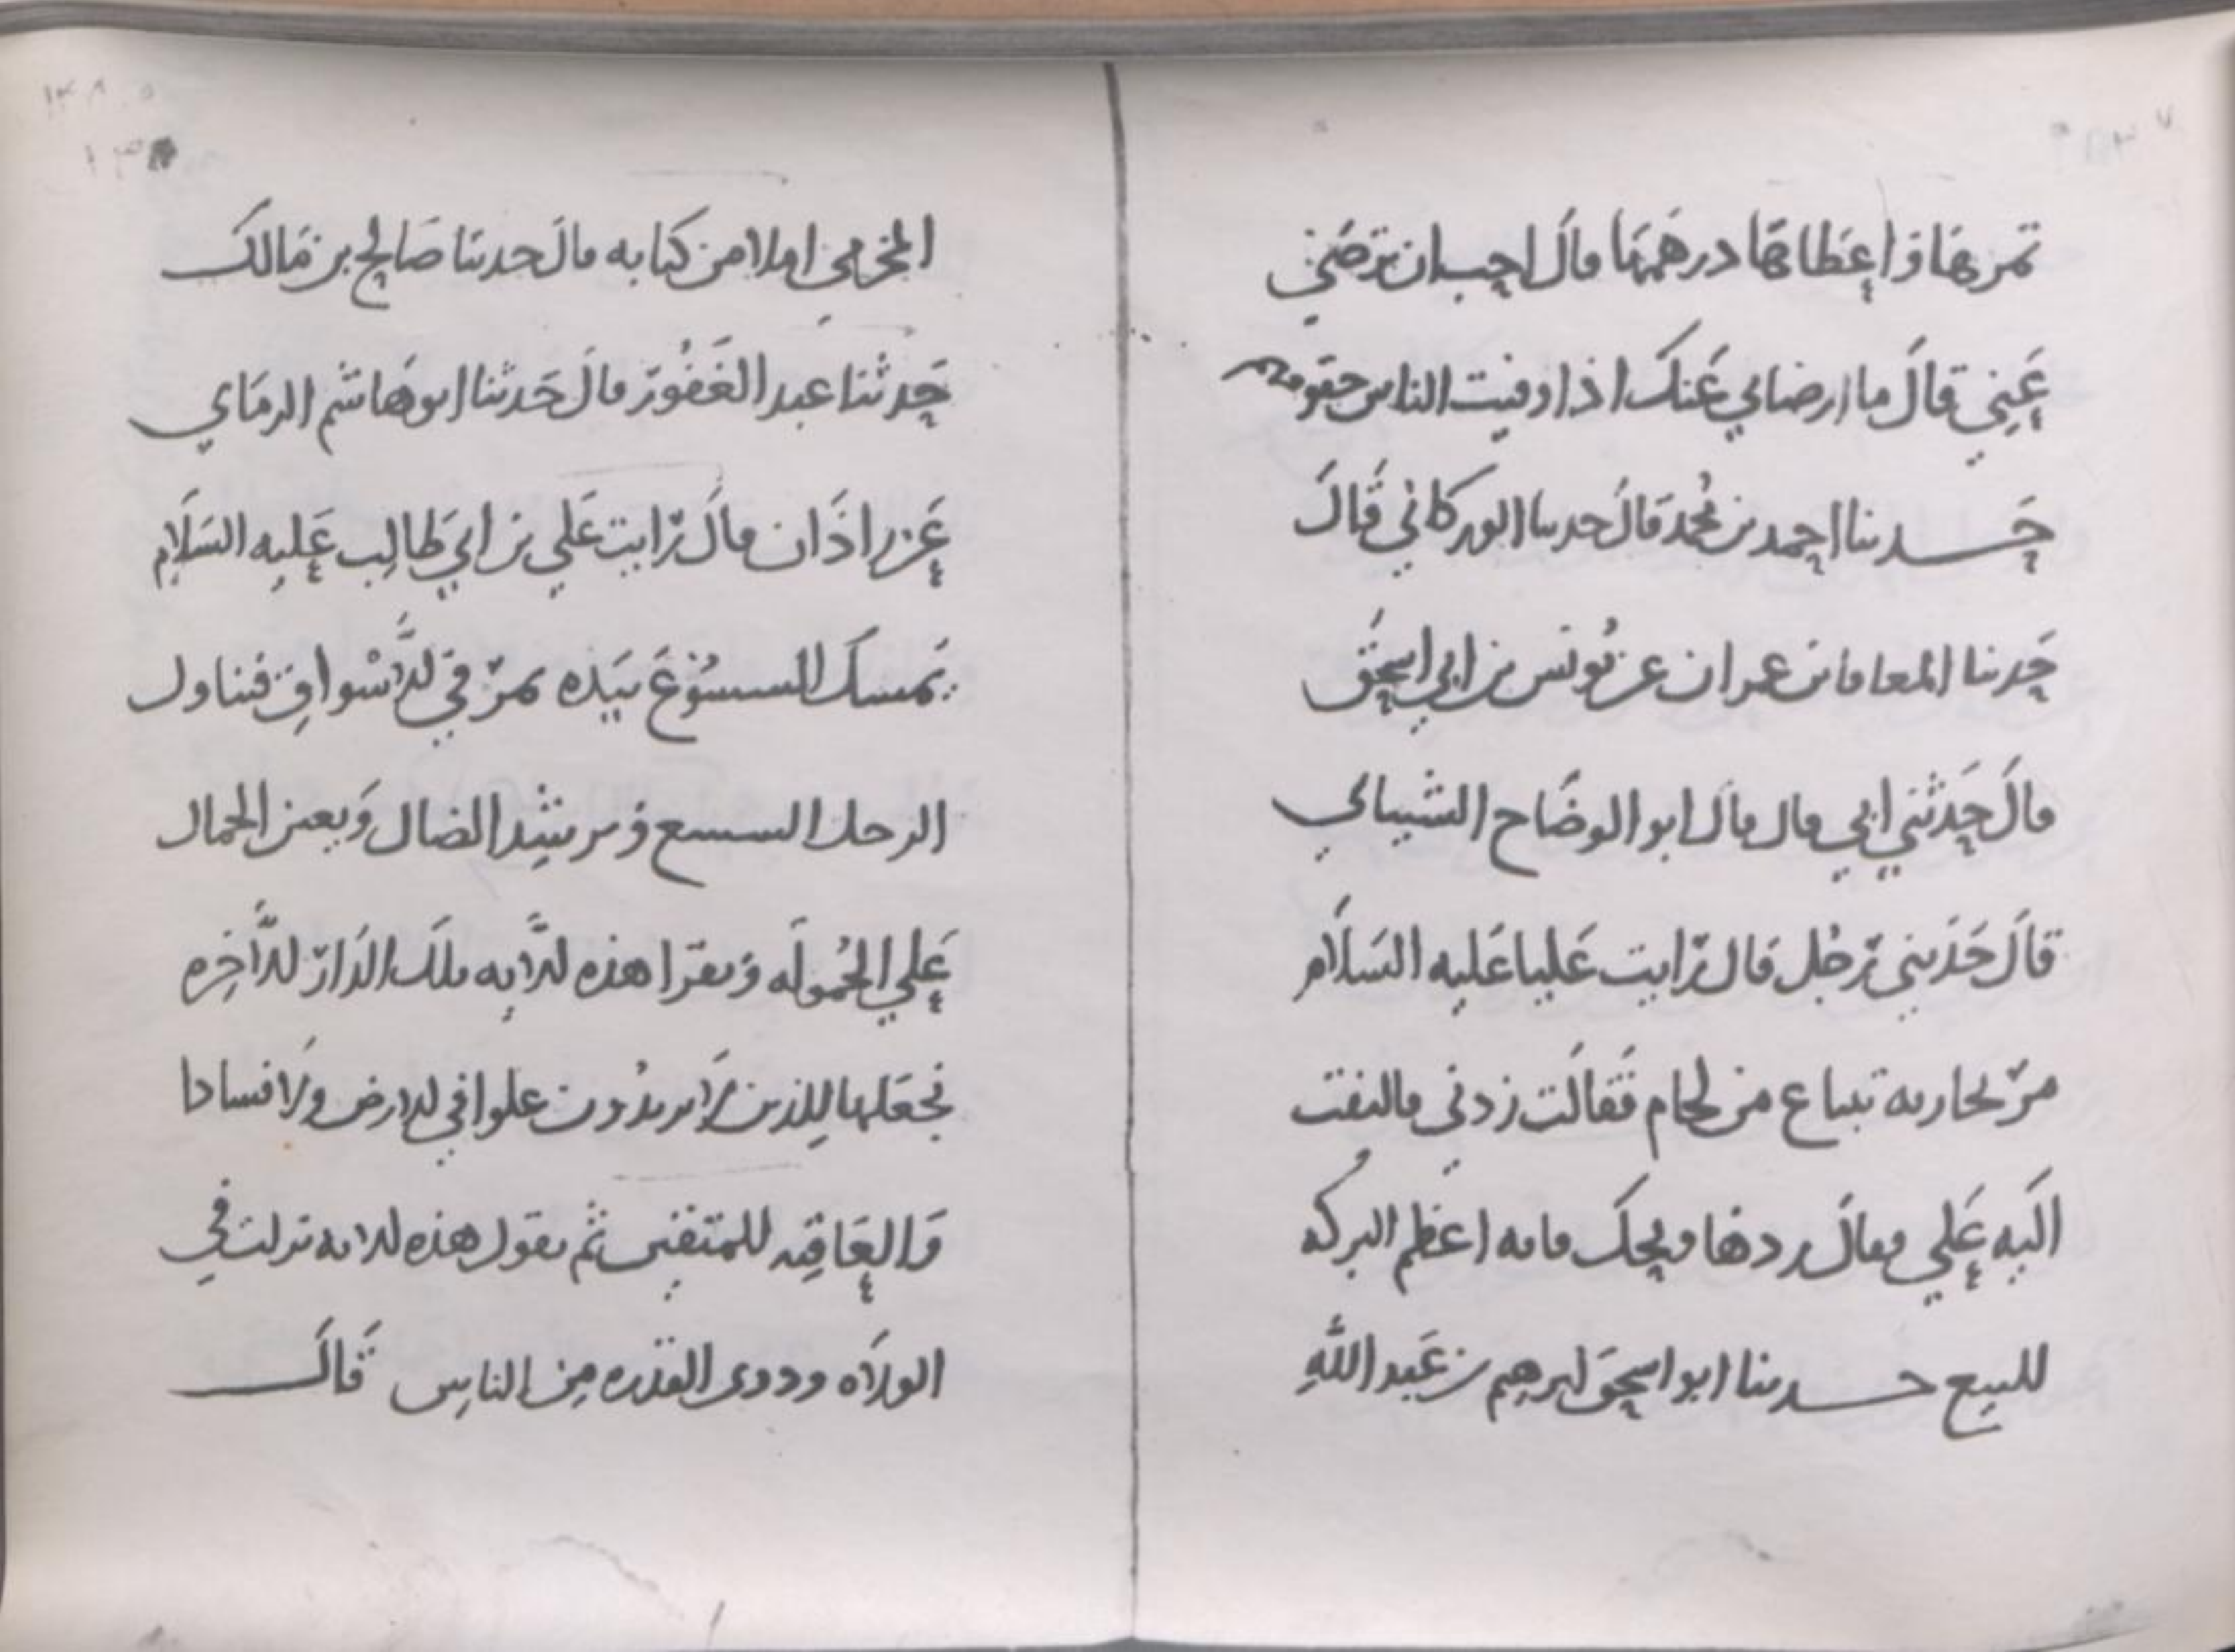 تمرها واعطاها درهمها قال احب ان ترضى
عني قال ما ارضاني عنك اذا اوفيت الناس حقوقهم
حدثنا احمد بن محمد قال حدثنا الوركاني قال
حدثنا المعافا بن عمران عن يونس بن ابي اسحق
قال حدثني ابي قال قال ابو الوضاح الشيباني
قال حدثني رجل قال رايت عليا عليه السلام
مر بجاريه تبتاع من لحام فقالت زدني فالتفت
اليه علي فقال زدها ويحك فانه اعظم البركه
للبيع حدثنا ابو اسحق ابرهيم بن عبد الله
المخرمي املا من كتابه قال حدثنا صالح بن مالك
حدثنا عبد الغفور قال حدثنا ابو هاشم الرماني
عن زاذان قال رايت علي بن ابي طالب عليه السلام
يمسك الشسوع بيده يمر في الاسواق فيناول
الرجل الشسع ويرشد الضال ويعين الحمال
علي الحموله ويقرا هذه الايه تلك الدار الاخره
نجعلها للذين لا يريدون علوا في الارض ولا فسادا
والعاقبه للمتقين ثم يقول هذه الايه نزلت في
الولاه وذوي القدره من الناس قال